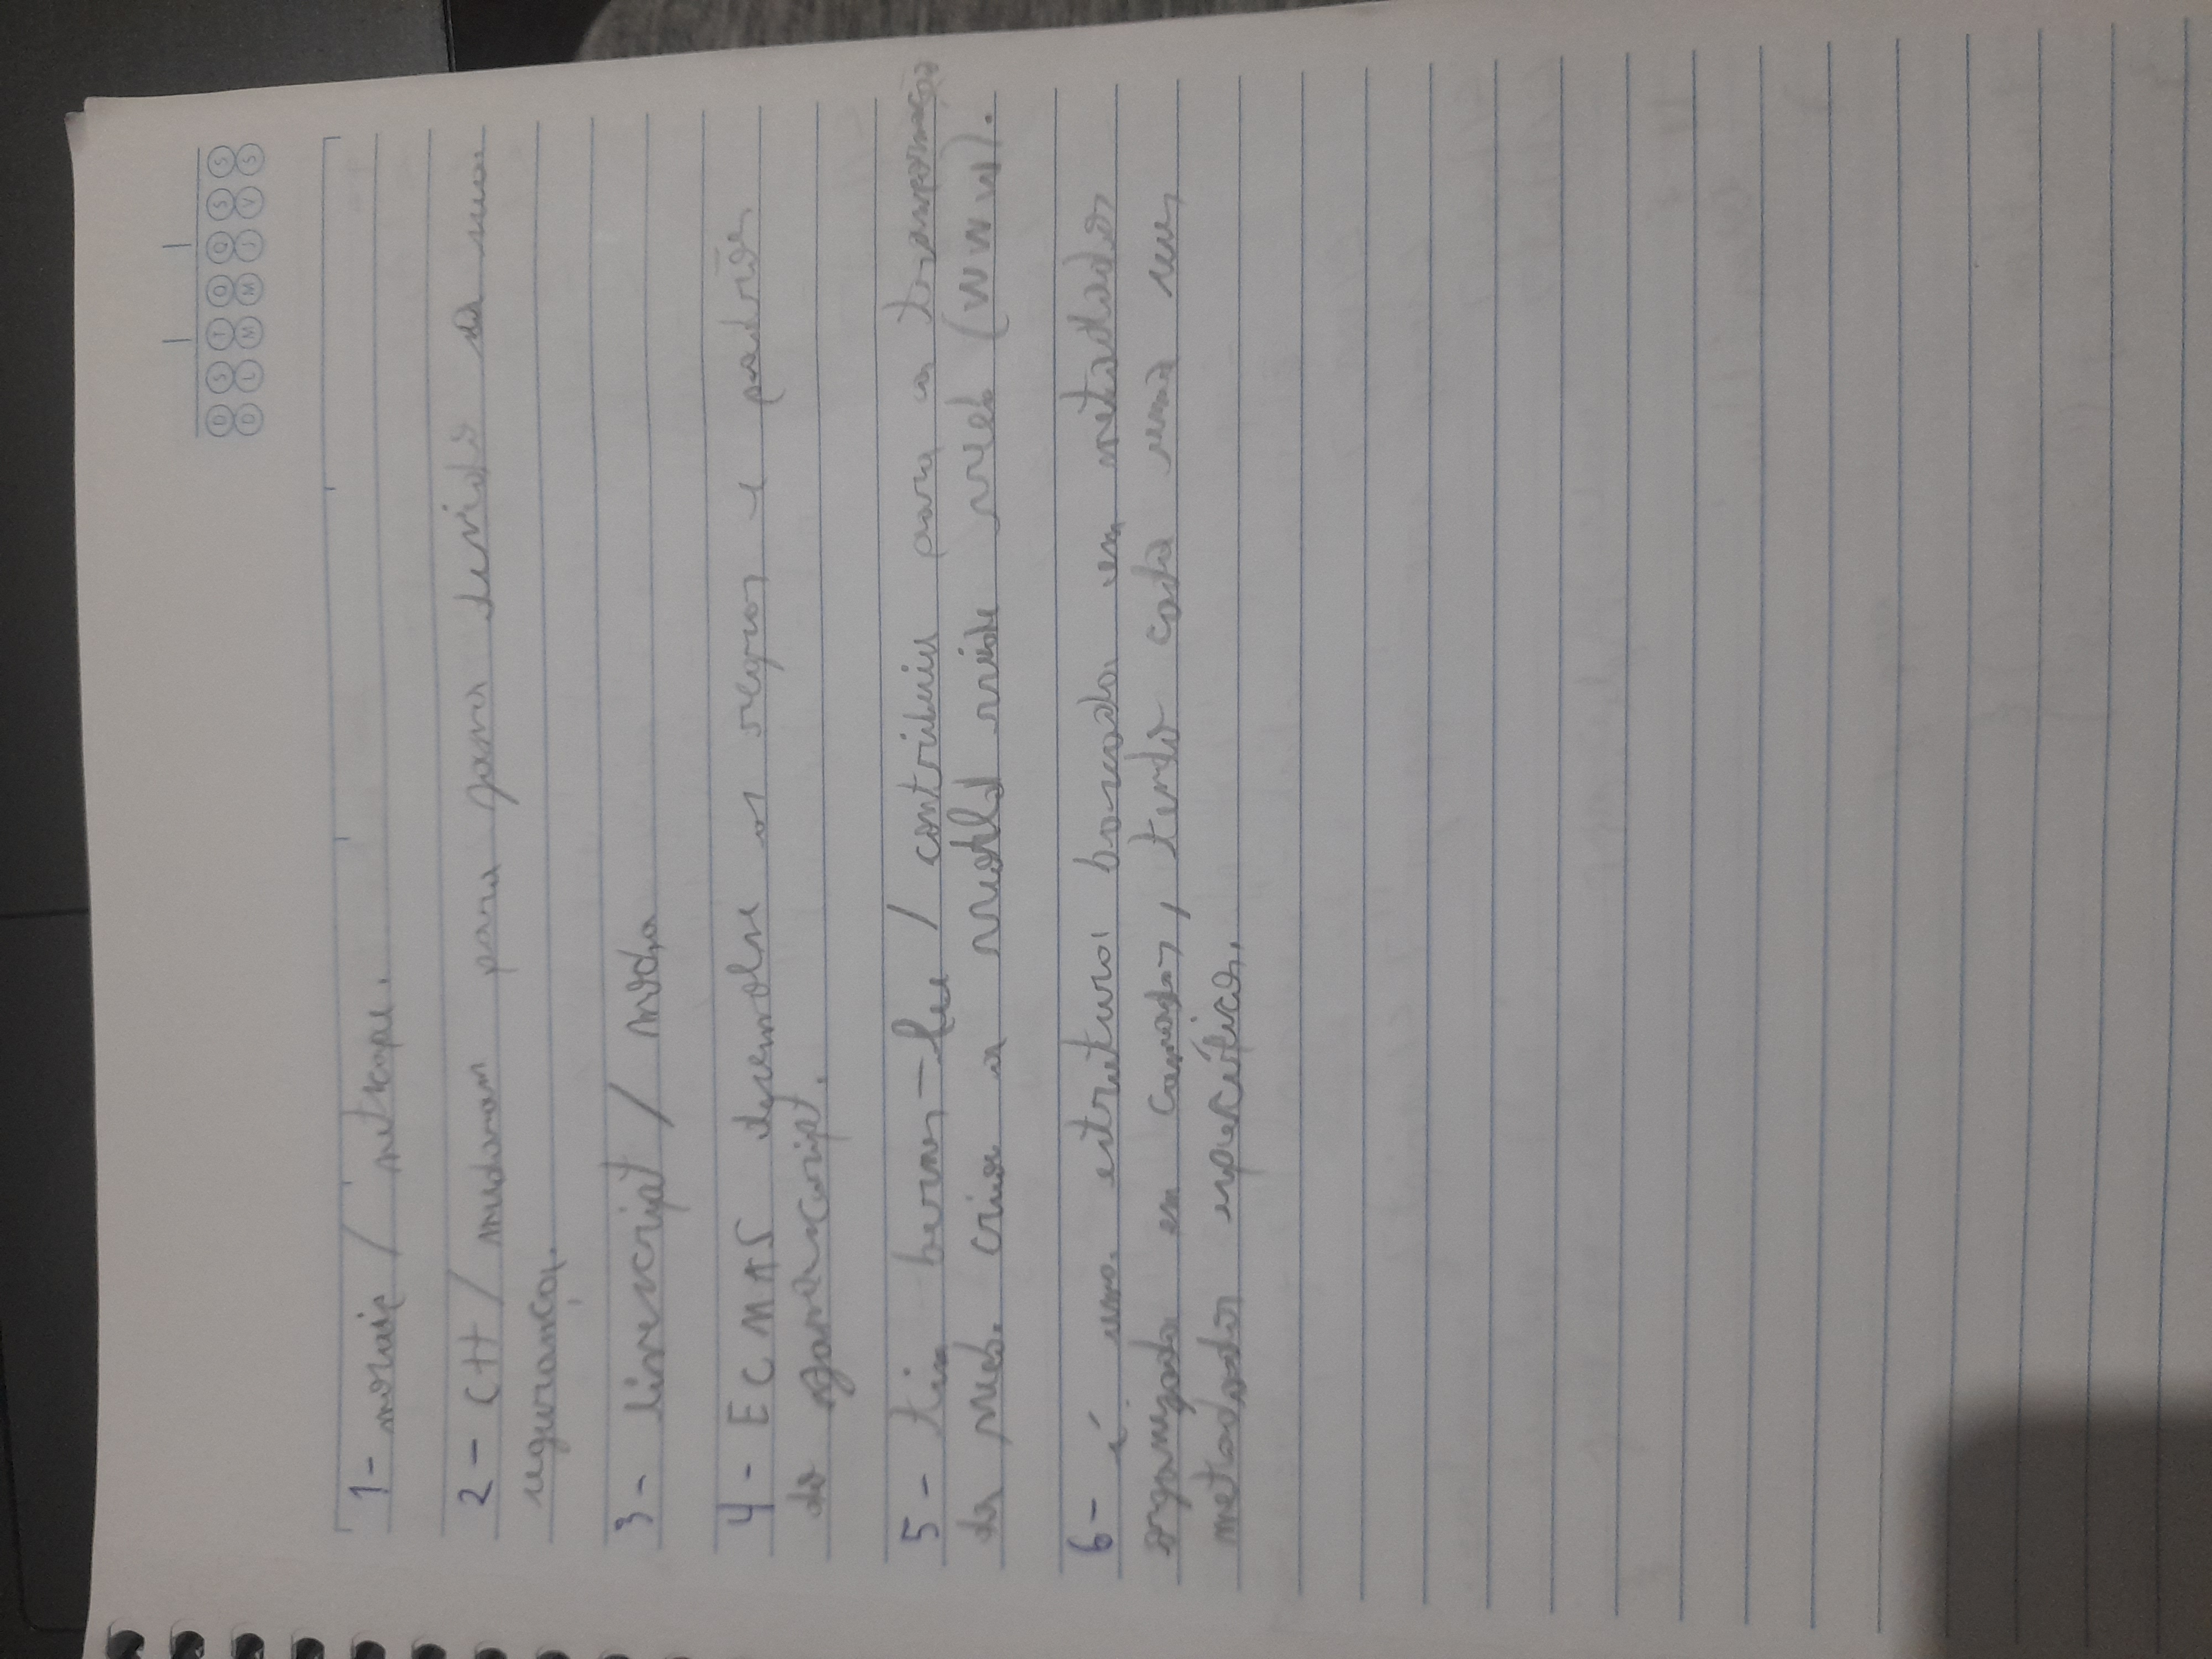 D S T Q Q S S
D L M M J V S
1- mosaic / netscape.
2- C++ / mudaram para java devido a sua
segurança.
3- livescript / mocha
4- ECMAS desenvolve as regras e padrões
do javascript.
5- tim berners-lee / contribuiu para a transformação
da web. criou a world wide web (WWW).
6- é uma estrutura baseada em metadados
organizada em camadas, tendo cada uma seus
metadados específicos.